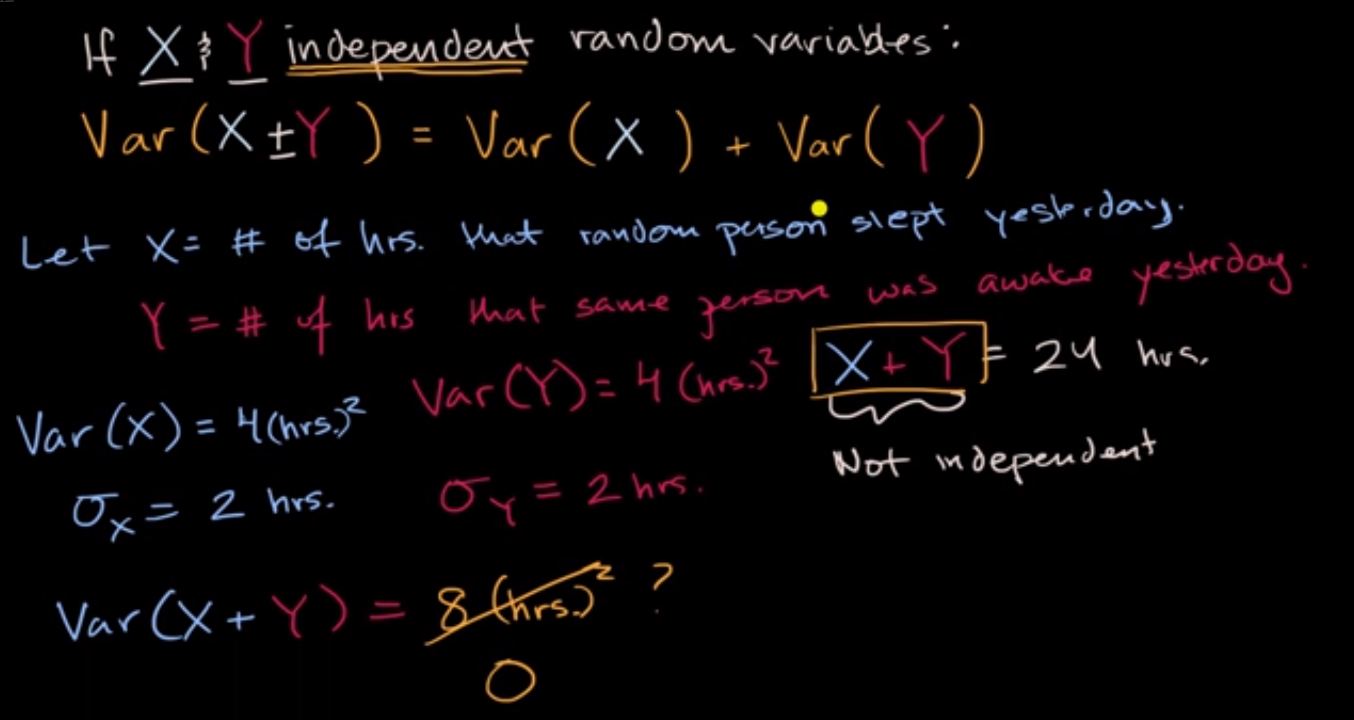 If X & Y independent random variables:
Var(X ± Y) = Var(X) + Var(Y)
Let X = # of hrs. that random person slept yesterday.
Y = # of hrs that same person was awake yesterday.
Var(Y) = 4 (hrs.)² X + Y = 24 hrs.
Var(X) = 4(hrs.)²
Not independent
σx = 2 hrs. σY = 2 hrs.
Var(X + Y) = 8 (hrs.)² ?
0